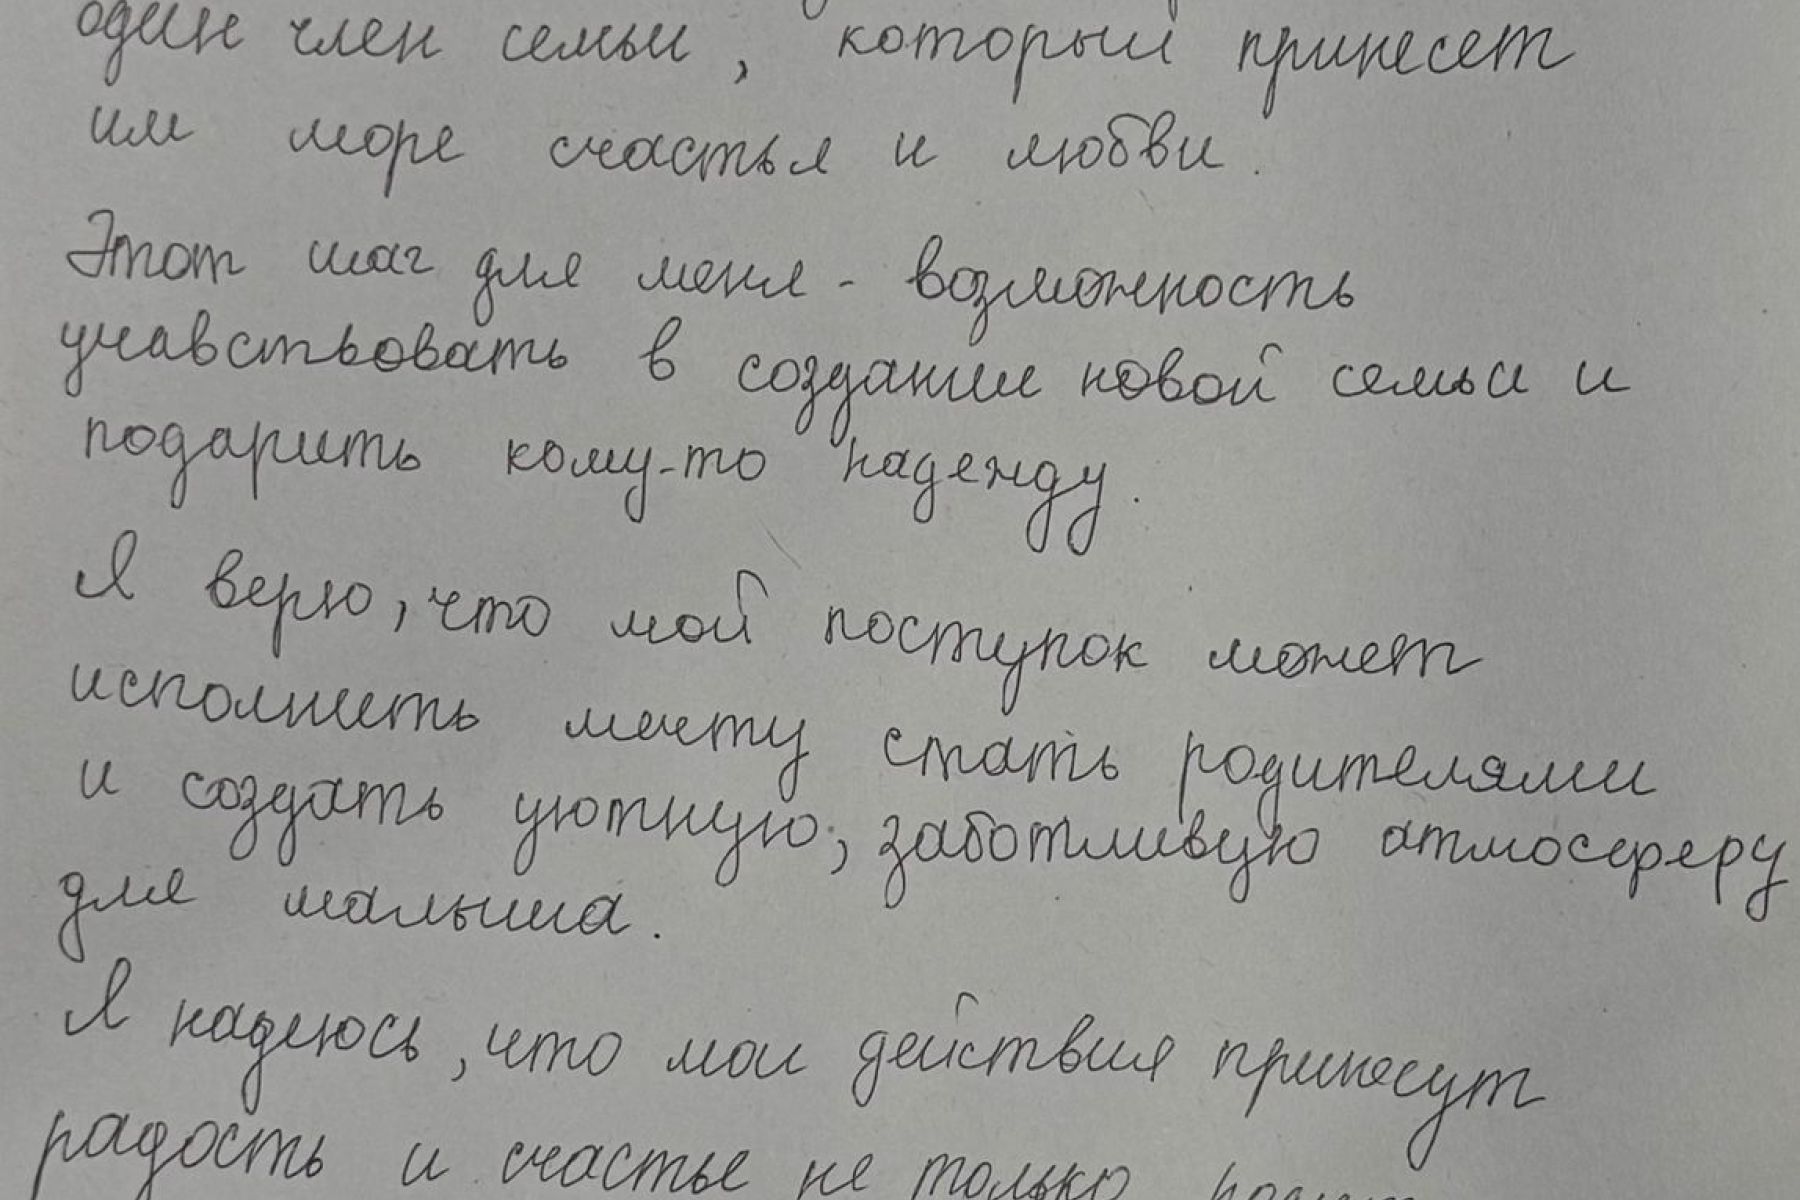 один член семьи, который принесет
им море счастья и любви.
Этот шаг для меня - возможность
учавствовать в создании новой семьи и
подарить кому-то надежду.
Я верю, что мой поступок может
исполнить мечту стать родителями
и создать уютную, заботливую атмосферу
для малыша.
Я надеюсь, что мои действия принесут
радость и счастье не только